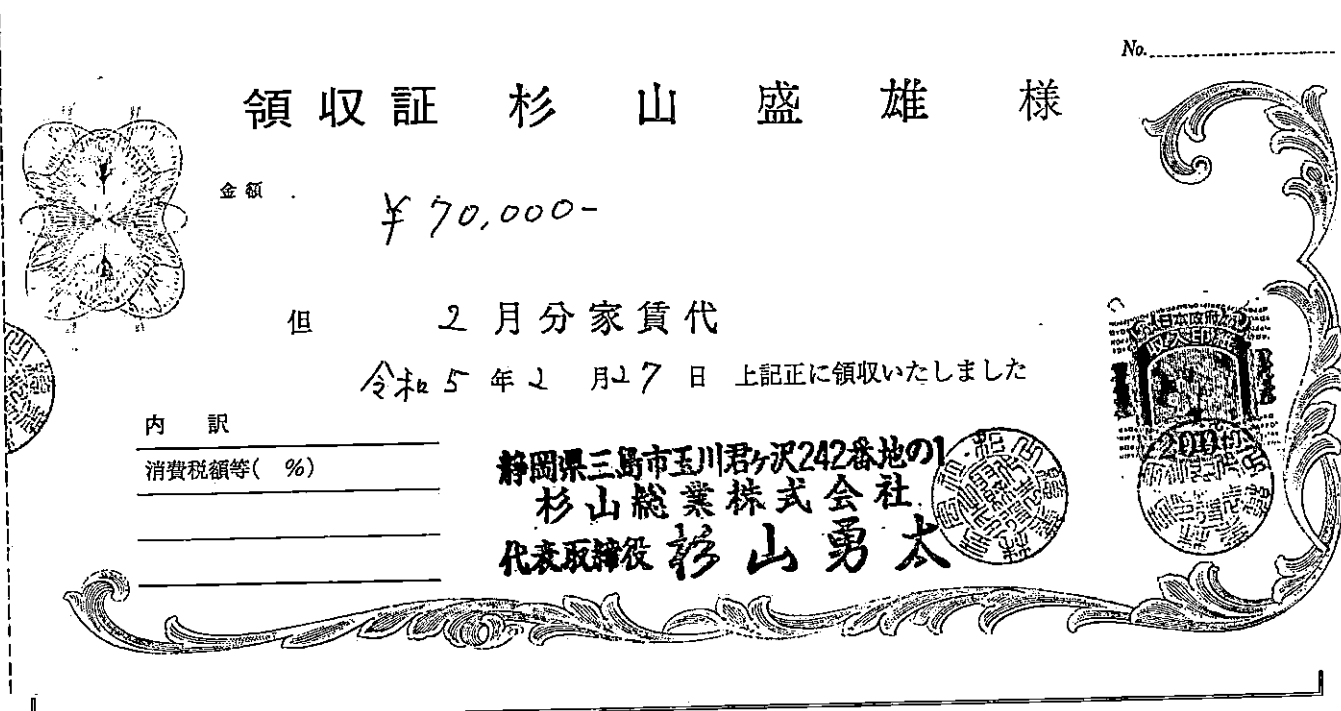 No.
領収証 杉 山 盛 雄 様
金額
¥70,000-
但 2月分家賃代
令和5年2月27日 上記正に領収いたしました
内 訳
消費税額等( %)
静岡県三島市玉川君ヶ沢242番地の1
杉山総業株式会社
代表取締役 杉山勇太
日本政府
収入印紙
200